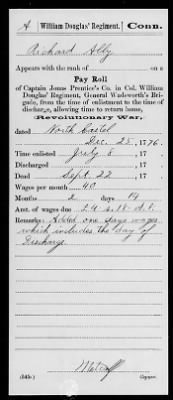 A | William Douglas' Regiment. | Conn.
Richard Alby
Appears with the rank of on a
Pay Roll
of Captain Jonas Prentice's Co. in Col. William
Douglas' Regiment, General Wadsworth's Bri-
gade, from the time of enlistment to the time of
discharge, allowing time to return home,
Revolutionary War,
dated North Castel
Dec. 25, 1776.
Time enlisted July 5, 17 .
Discharged , 17 .
Dead Sept. 22, 17 .
Wages per month 40
Months 2 days 19
Amt. of wages due
Remarks: Added one days wages
which includes the day of
Discharge.
Metcalf
(545r.) Copyist.